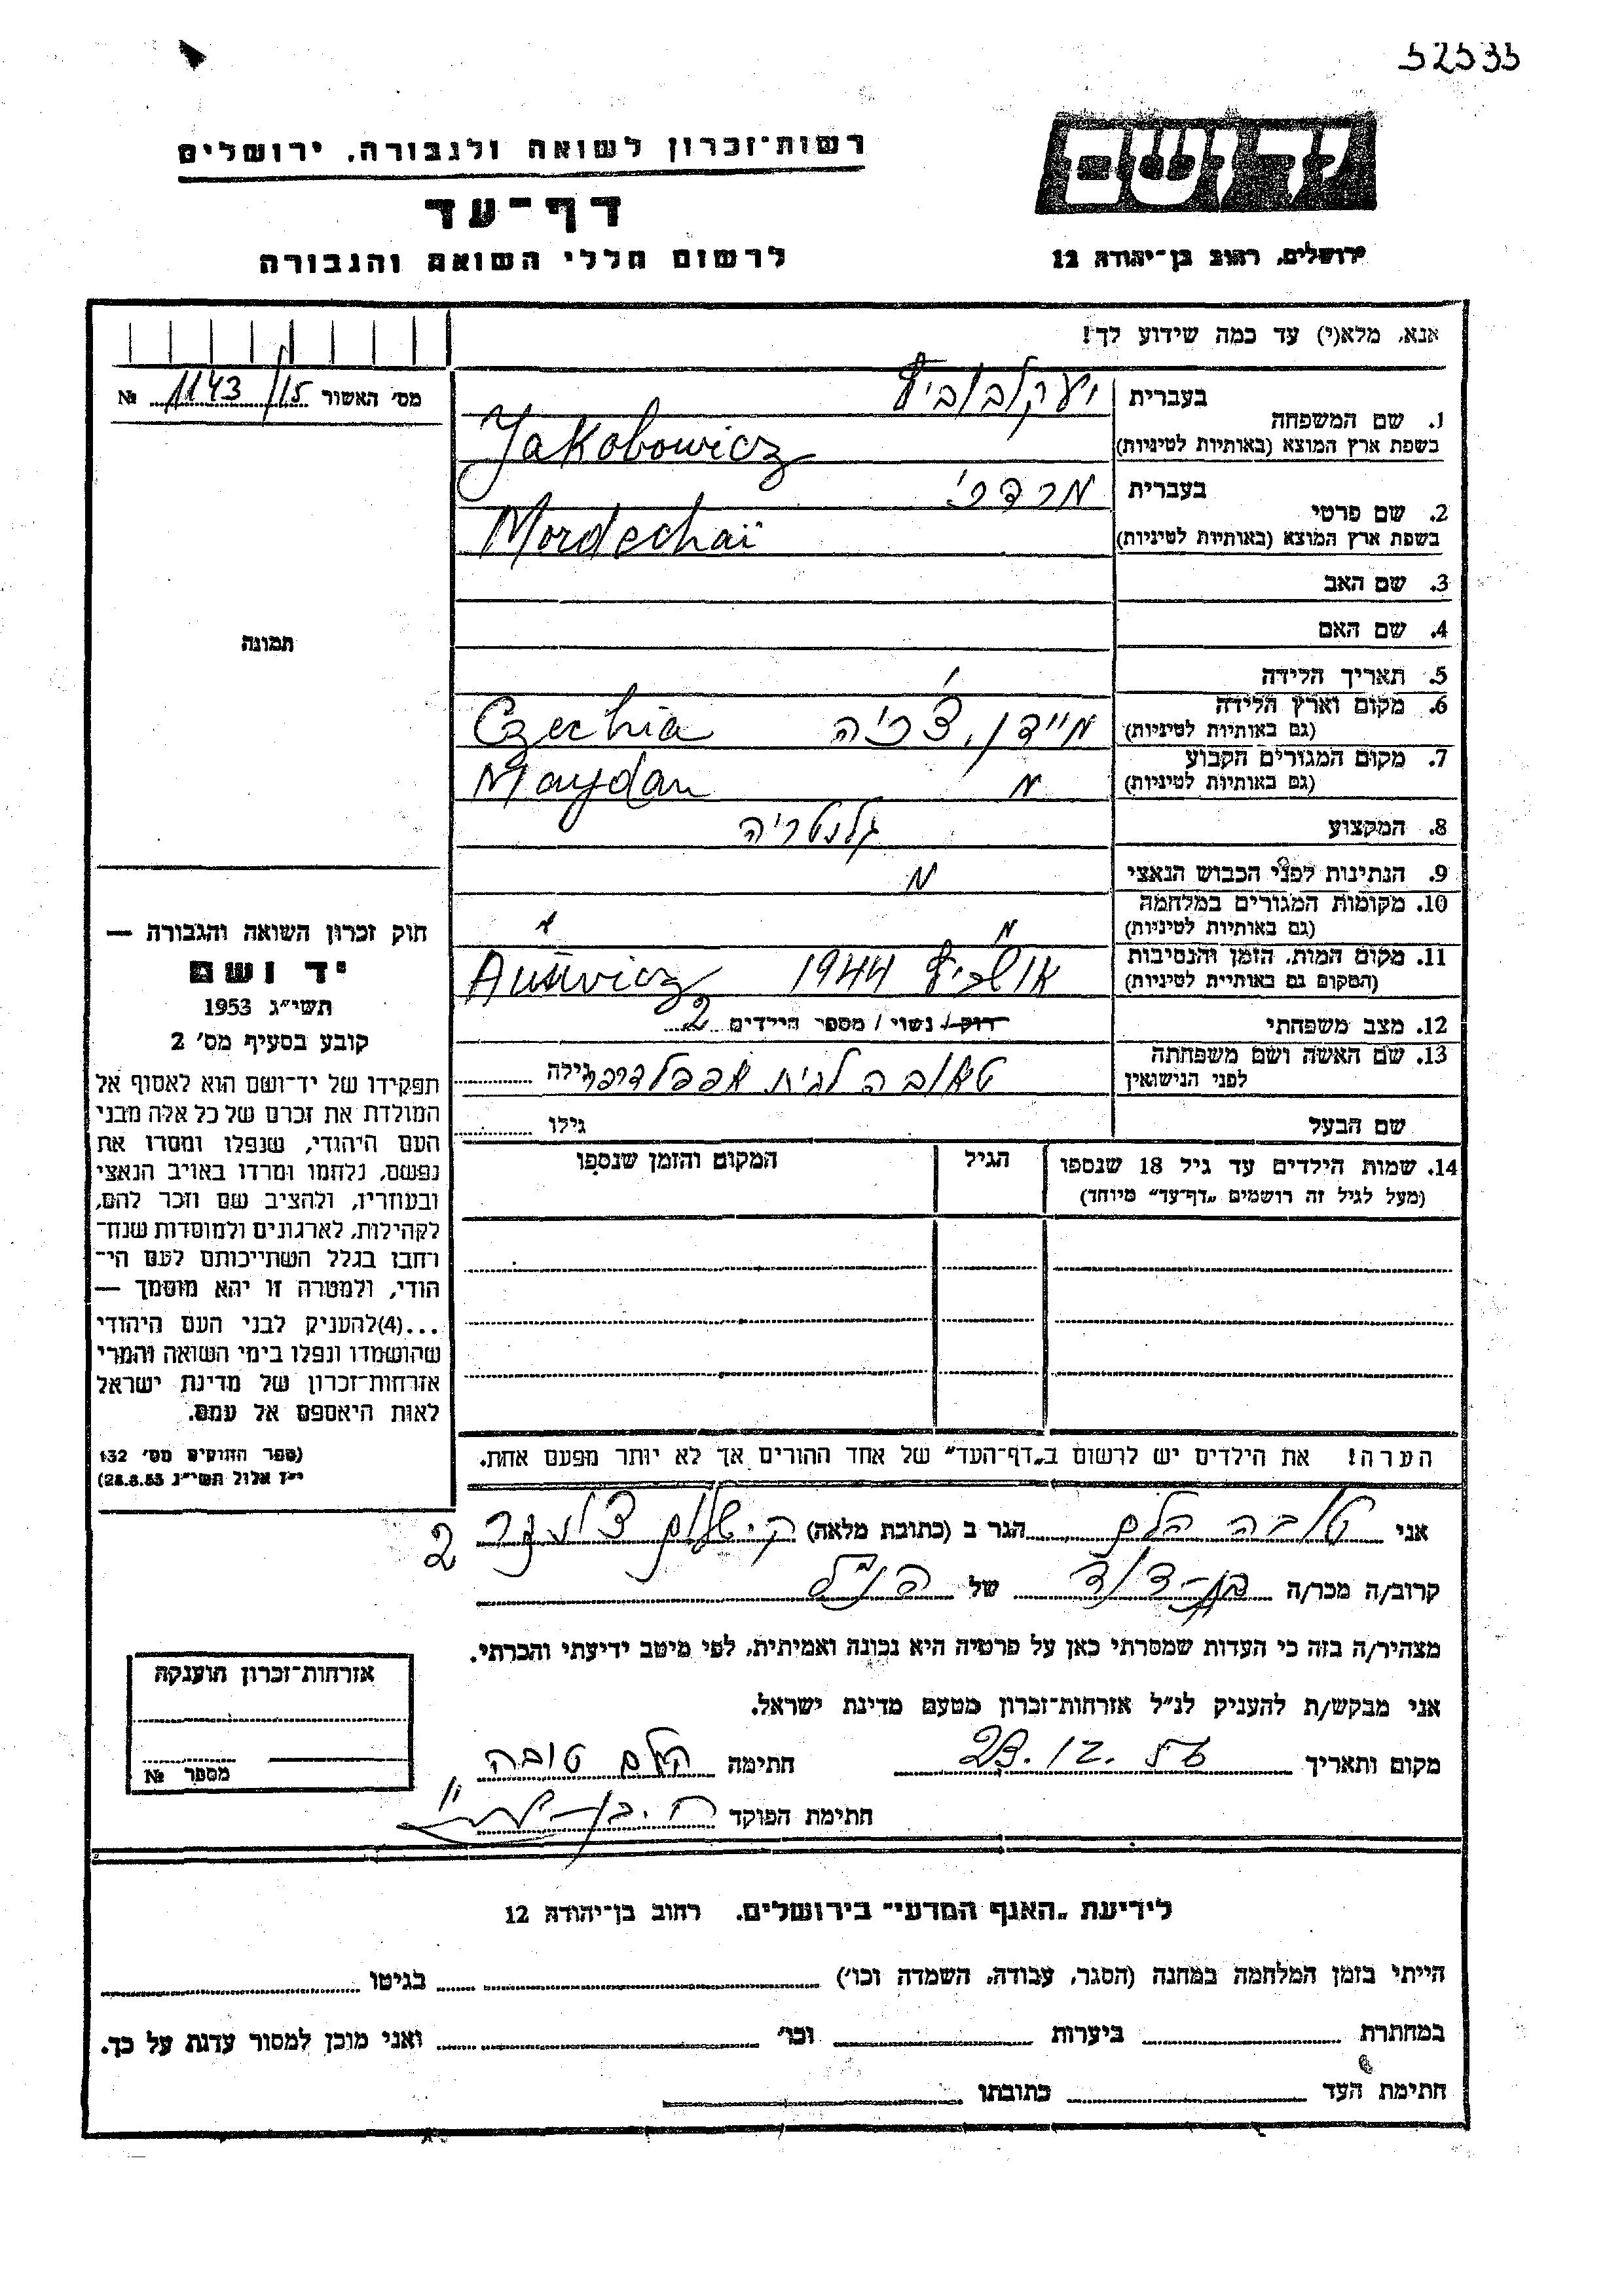 52535
יד ושם
ירושלים, רחוב בן־יהודה 12
רשות־זכרון לשואה ולגבורה, ירושלים
דף־עד
לרשום חללי השואה והגבורה
אנא, מלא(י) עד כמה שידוע לך!
מס׳ האשור 1143/15 №
תמונה
חוק זכרון השואה והגבורה —
יד ושם
תשי״ג 1953
קובע בסעיף מס׳ 2
תפקידו של יד־ושם הוא לאסוף אל
המולדת את זכרם של כל אלה מבני
העם היהודי, שנפלו ומסרו את
נפשם, נלחמו ומרדו באויב הנאצי
ובעוזריו, ולהציב שם וזכר להם,
לקהילות, לארגונים ולמוסדות שנח־
רחבו בגלל השתייכותם לעם הי־
הודי, ולמטרה זו יהא מוסמך —
...(4)להעניק לבני העם היהודי
שהושמדו ונפלו בימי השואה והמרי
אזרחות־זכרון של מדינת ישראל
לאות היאספם אל עמם.
(ספר החוקים מס׳ 132
י״ז אלול תשי״ג 28.8.53)
1. שם המשפחה
בעברית יעקובוביץ
בשפת ארץ המוצא (באותיות לטיניות) Jakobowicz
2. שם פרטי
בעברית מרדכי
בשפת ארץ המוצא (באותיות לטיניות) Mordechaï
3. שם האב
4. שם האם
5. תאריך הלידה
6. מקום וארץ הלידה מיידן, צ׳כיה Czechia
(גם באותיות לטיניות)
7. מקום המגורים הקבוע " Maydan
(גם באותיות לטיניות)
8. המקצוע גלנטריה
9. הנתינות לפני הכבוש הנאצי "
10. מקומות המגורים במלחמה " "
(גם באותיות לטיניות)
11. מקום המות, הזמן והנסיבות אושביץ 1944 Auswicz
(המקום גם באותיית לטיניות)
12. מצב משפחתי רוק/ נשוי / מספר הילדים 2
13. שם האשה ושם משפחתה טאובה לבית גילה
לפני הנישואין
שם הבעל גילו
14. שמות הילדים עד גיל 18 שנספו הגיל המקום והזמן שנספו
(מעל לגיל זה רושמים „דף־עד״ מיוחד)
הערה! את הילדים יש לרשום ב„דף־העד״ של אחד ההורים אך לא יותר מפעם אחת.
אני טובה הלם הגר ב (כתובת מלאה) ק. 2
קרוב/ה מכר/ה בן-דוד של הנ״ל
מצהיר/ה בזה כי העדות שמסרתי כאן על פרטיה היא נכונה ואמיתית, לפי מיטב ידיעתי והכרתי.
אני מבקש/ת להעניק לנ״ל אזרחות־זכרון מטעם מדינת ישראל.
מקום ותאריך 23.12. חתימה הלם טובה
חתימת הפוקד
אזרחות־זכרון הוענקה
מספר №
לידיעת „האגף המדעי״ בירושלים, רחוב בן־יהודה 12
הייתי בזמן המלחמה במחנה (הסגר, עבודה, השמדה וכו׳) בגיטו
במחתרת ביערות וכו׳ ואני מוכן למסור עדות על כך.
חתימת העד כתובתו